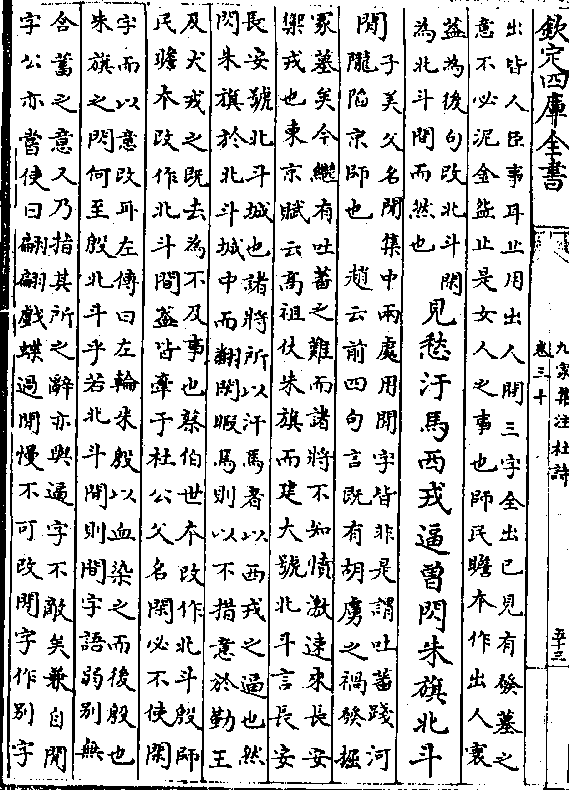 欽定四庫全書
九家集注杜詩
卷三十
五十三
出皆人臣事耳止用出人間三字全出已見有發墓之
意不必泥金盌止是女人之事也師民瞻本作出人寰
益為後句改北斗閑
為北斗間而然也
見愁汗馬西戎逼曾閃朱旗北斗
閒
子美父名閑集中兩處用閑字皆非是謂吐蕃踐河
隴陷京師也 趙云前四句言既有胡虜之禍發掘
冢墓矣今繼有吐蕃之難而諸將不知憤激速來長安
禦戎也東京賦云高祖仗朱旗而建大號北斗言長安
長安號北斗城也諸將所以汗馬者以西戎之逼也然
閃朱旗於北斗城中而翻閑暇焉則以不措意於勤王
及犬戎之既去為不及事也蔡伯世本改作北斗殷師
民瞻本改作北斗間蓋皆牽于杜公父名閑必不使閑
字而以意改耳左傳曰左輪朱殷以血染之而後殷也
朱旗之閃何至殷北斗乎若北斗間則間字語弱別無
含蓄之意又乃指其所之辭亦與逼字不敵矣兼自閒
字公亦嘗使曰翩翩戲蝶過閒慢不可改閒字作別字